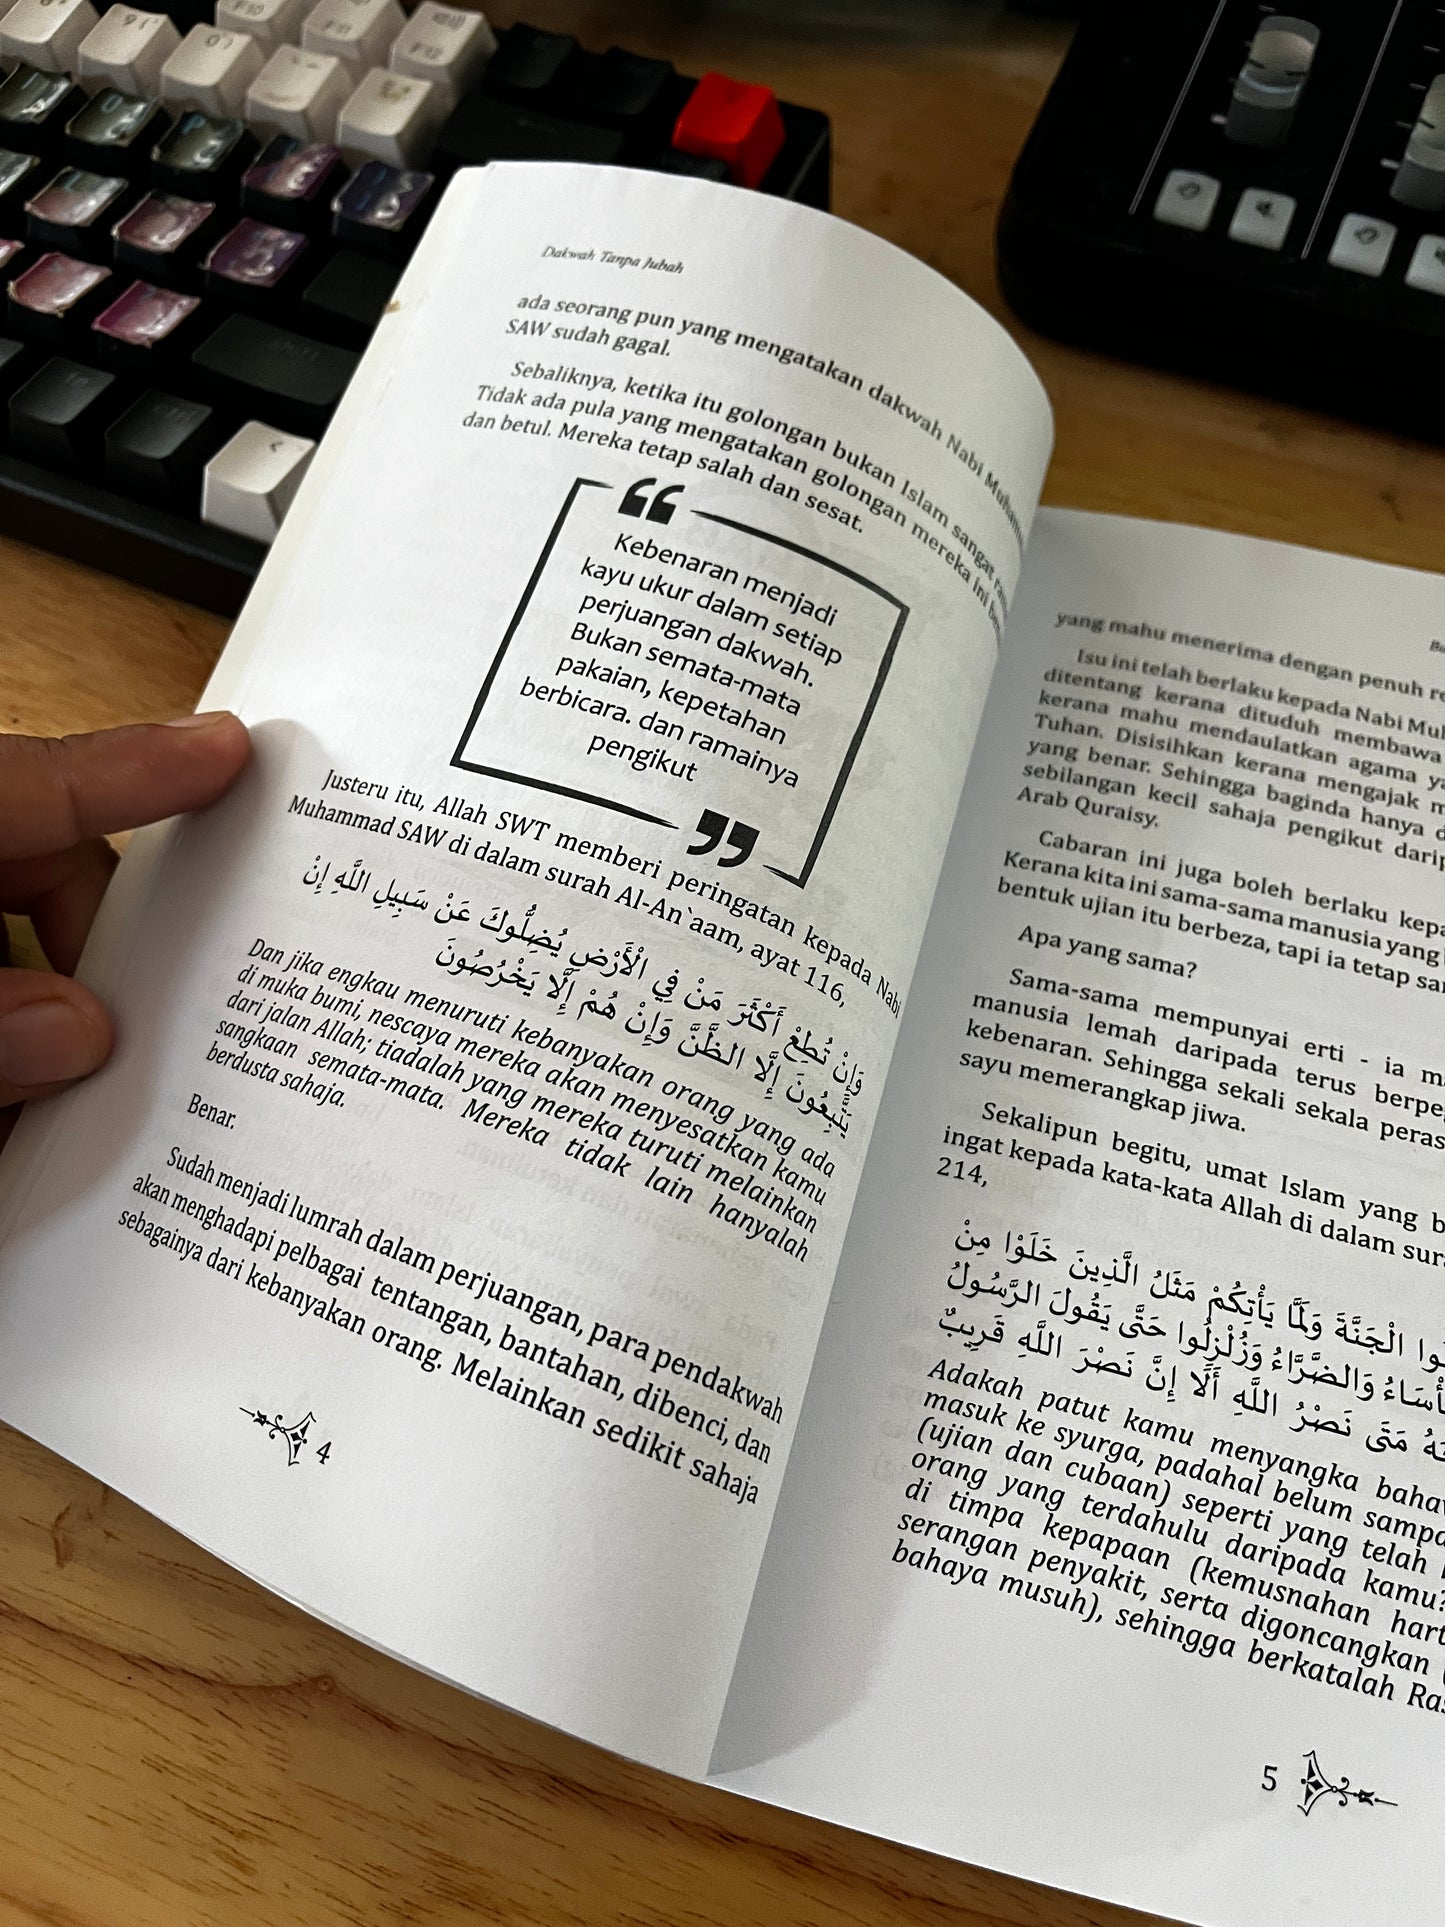 Dakwah Tanpa Jubah
ada seorang pun yang mengatakan dakwah Nabi
SAW sudah gagal.
Sebaliknya, ketika itu golongan bukan Islam sangat
Tidak ada pula yang mengatakan golongan mereka ini
dan betul. Mereka tetap salah dan sesat.
“
Kebenaran menjadi
kayu ukur dalam setiap
perjuangan dakwah.
Bukan semata-mata
pakaian, kepetahan
berbicara. dan ramainya
pengikut
”
Justeru itu, Allah SWT memberi peringatan kepada Nabi
Muhammad SAW di dalam surah Al-An`aam, ayat 116,
وَإِنْ تُطِعْ أَكْثَرَ مَنْ فِي الْأَرْضِ يُضِلُّوكَ عَنْ سَبِيلِ اللَّهِ إِنْ
يَتَّبِعُونَ إِلَّا الظَّنَّ وَإِنْ هُمْ إِلَّا يَخْرُصُونَ
Dan jika engkau menuruti kebanyakan orang yang ada
di muka bumi, nescaya mereka akan menyesatkan kamu
dari jalan Allah; tiadalah yang mereka turuti melainkan
sangkaan semata-mata. Mereka tidak lain hanyalah
berdusta sahaja.
Benar.
Sudah menjadi lumrah dalam perjuangan, para pendakwah
akan menghadapi pelbagai tentangan, bantahan, dibenci, dan
sebagainya dari kebanyakan orang. Melainkan sedikit sahaja
4
yang mahu menerima dengan penuh
Isu ini telah berlaku kepada Nabi
ditentang kerana dituduh membawa
kerana mahu mendaulatkan agama
Tuhan. Disisihkan kerana mengajak
yang benar. Sehingga baginda hanya
sebilangan kecil sahaja pengikut
Arab Quraisy.
Cabaran ini juga boleh berlaku
Kerana kita ini sama-sama manusia yang
bentuk ujian itu berbeza, tapi ia tetap
Apa yang sama?
Sama-sama mempunyai erti - ia
manusia lemah daripada terus
kebenaran. Sehingga sekali sekala
sayu memerangkap jiwa.
Sekalipun begitu, umat Islam yang
ingat kepada kata-kata Allah di dalam
214,
الْجَنَّةَ وَلَمَّا يَأْتِكُمْ مَثَلُ الَّذِينَ خَلَوْا مِنْ
وَالضَّرَّاءُ وَزُلْزِلُوا حَتَّى يَقُولَ الرَّسُولُ
مَتَى نَصْرُ اللَّهِ أَلَا إِنَّ نَصْرَ اللَّهِ قَرِيبٌ
Adakah patut kamu menyangka
masuk ke syurga, padahal belum
(ujian dan cubaan) seperti yang telah
orang yang terdahulu daripada kamu?
di timpa kepapaan (kemusnahan
serangan penyakit, serta digoncangkan
bahaya musuh), sehingga berkatalah
5